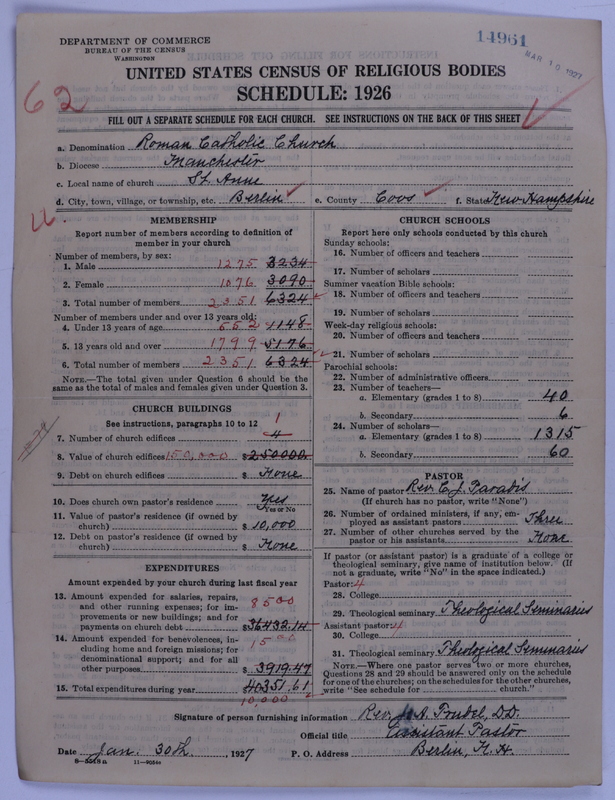 DEPARTMENT OF COMMERCE
BUREAU OF THE CENSUS
WASHINGTON
14961
MAR 10 1927
UNITED STATES CENSUS OF RELIGIOUS BODIES
SCHEDULE: 1926
62
FILL OUT A SEPARATE SCHEDULE FOR EACH CHURCH. SEE INSTRUCTIONS ON THE BACK OF THIS SHEET
a. Denomination Roman Catholic Church
b. Diocese Manchester
c. Local name of church St. Anne
d. City, town, village, or township, etc. Berlin e. County Coos f. State New Hampshire
MEMBERSHIP
Report number of members according to definition of
member in your church
Number of members, by sex:
1. Male 1275 3234
2. Female 1076 3090
3. Total number of members 2351 6324
Number of members under and over 13 years old:
4. Under 13 years of age 552 1148
5. 13 years old and over 1799 5176
6. Total number of members 2351 6324
NOTE.—The total given under Question 6 should be the
same as the total of males and females given under Question 3.
CHURCH BUILDINGS
See instructions, paragraphs 10 to 12
1
7. Number of church edifices 4
8. Value of church edifices 150,000 $250000.
9. Debt on church edifices $ None
10. Does church own pastor's residence Yes
Yes or No
11. Value of pastor's residence (if owned by
church) $ 10,000
12. Debt on pastor's residence (if owned by
church) $ None
EXPENDITURES
Amount expended by your church during last fiscal year
13. Amount expended for salaries, repairs,
and other running expenses; for im-
provements or new buildings; and for
payments on church debt 8500 $36432.14
14. Amount expended for benevolences, in-
cluding home and foreign missions; for
denominational support; and for all
other purposes 1500 $ 3919.47
15. Total expenditures during year 40351.61
10,000
CHURCH SCHOOLS
Report here only schools conducted by this church
Sunday schools:
16. Number of officers and teachers
17. Number of scholars
Summer vacation Bible schools:
18. Number of officers and teachers
19. Number of scholars
Week-day religious schools:
20. Number of officers and teachers
21. Number of scholars
Parochial schools:
22. Number of administrative officers
23. Number of teachers—
a. Elementary (grades 1 to 8) 40
b. Secondary 6
24. Number of scholars—
a. Elementary (grades 1 to 8) 1315
b. Secondary 60
PASTOR
25. Name of pastor Rev. E. J. Paradis
(If church has no pastor, write "None")
26. Number of ordained ministers, if any, em-
ployed as assistant pastors Three
27. Number of other churches served by the
pastor or his assistants None
If pastor (or assistant pastor) is a graduate of a college or
theological seminary, give name of institution below. (If
not a graduate, write "No" in the space indicated.)
Pastor: 4
28. College
29. Theological seminary Theological Seminaries
Assistant pastor: 4
30. College
31. Theological seminary Theological Seminaries
NOTE.—Where one pastor serves two or more churches,
Questions 28 and 29 should be answered only on the schedule
for one of the churches; on the schedules for the other churches,
write "See schedule for church."
Signature of person furnishing information Rev. A. Trudel, D.D.
Official title Assistant Pastor
Date Jan. 30th, 1927 P. O. Address Berlin, N.H.
8—3518a 11—9056c